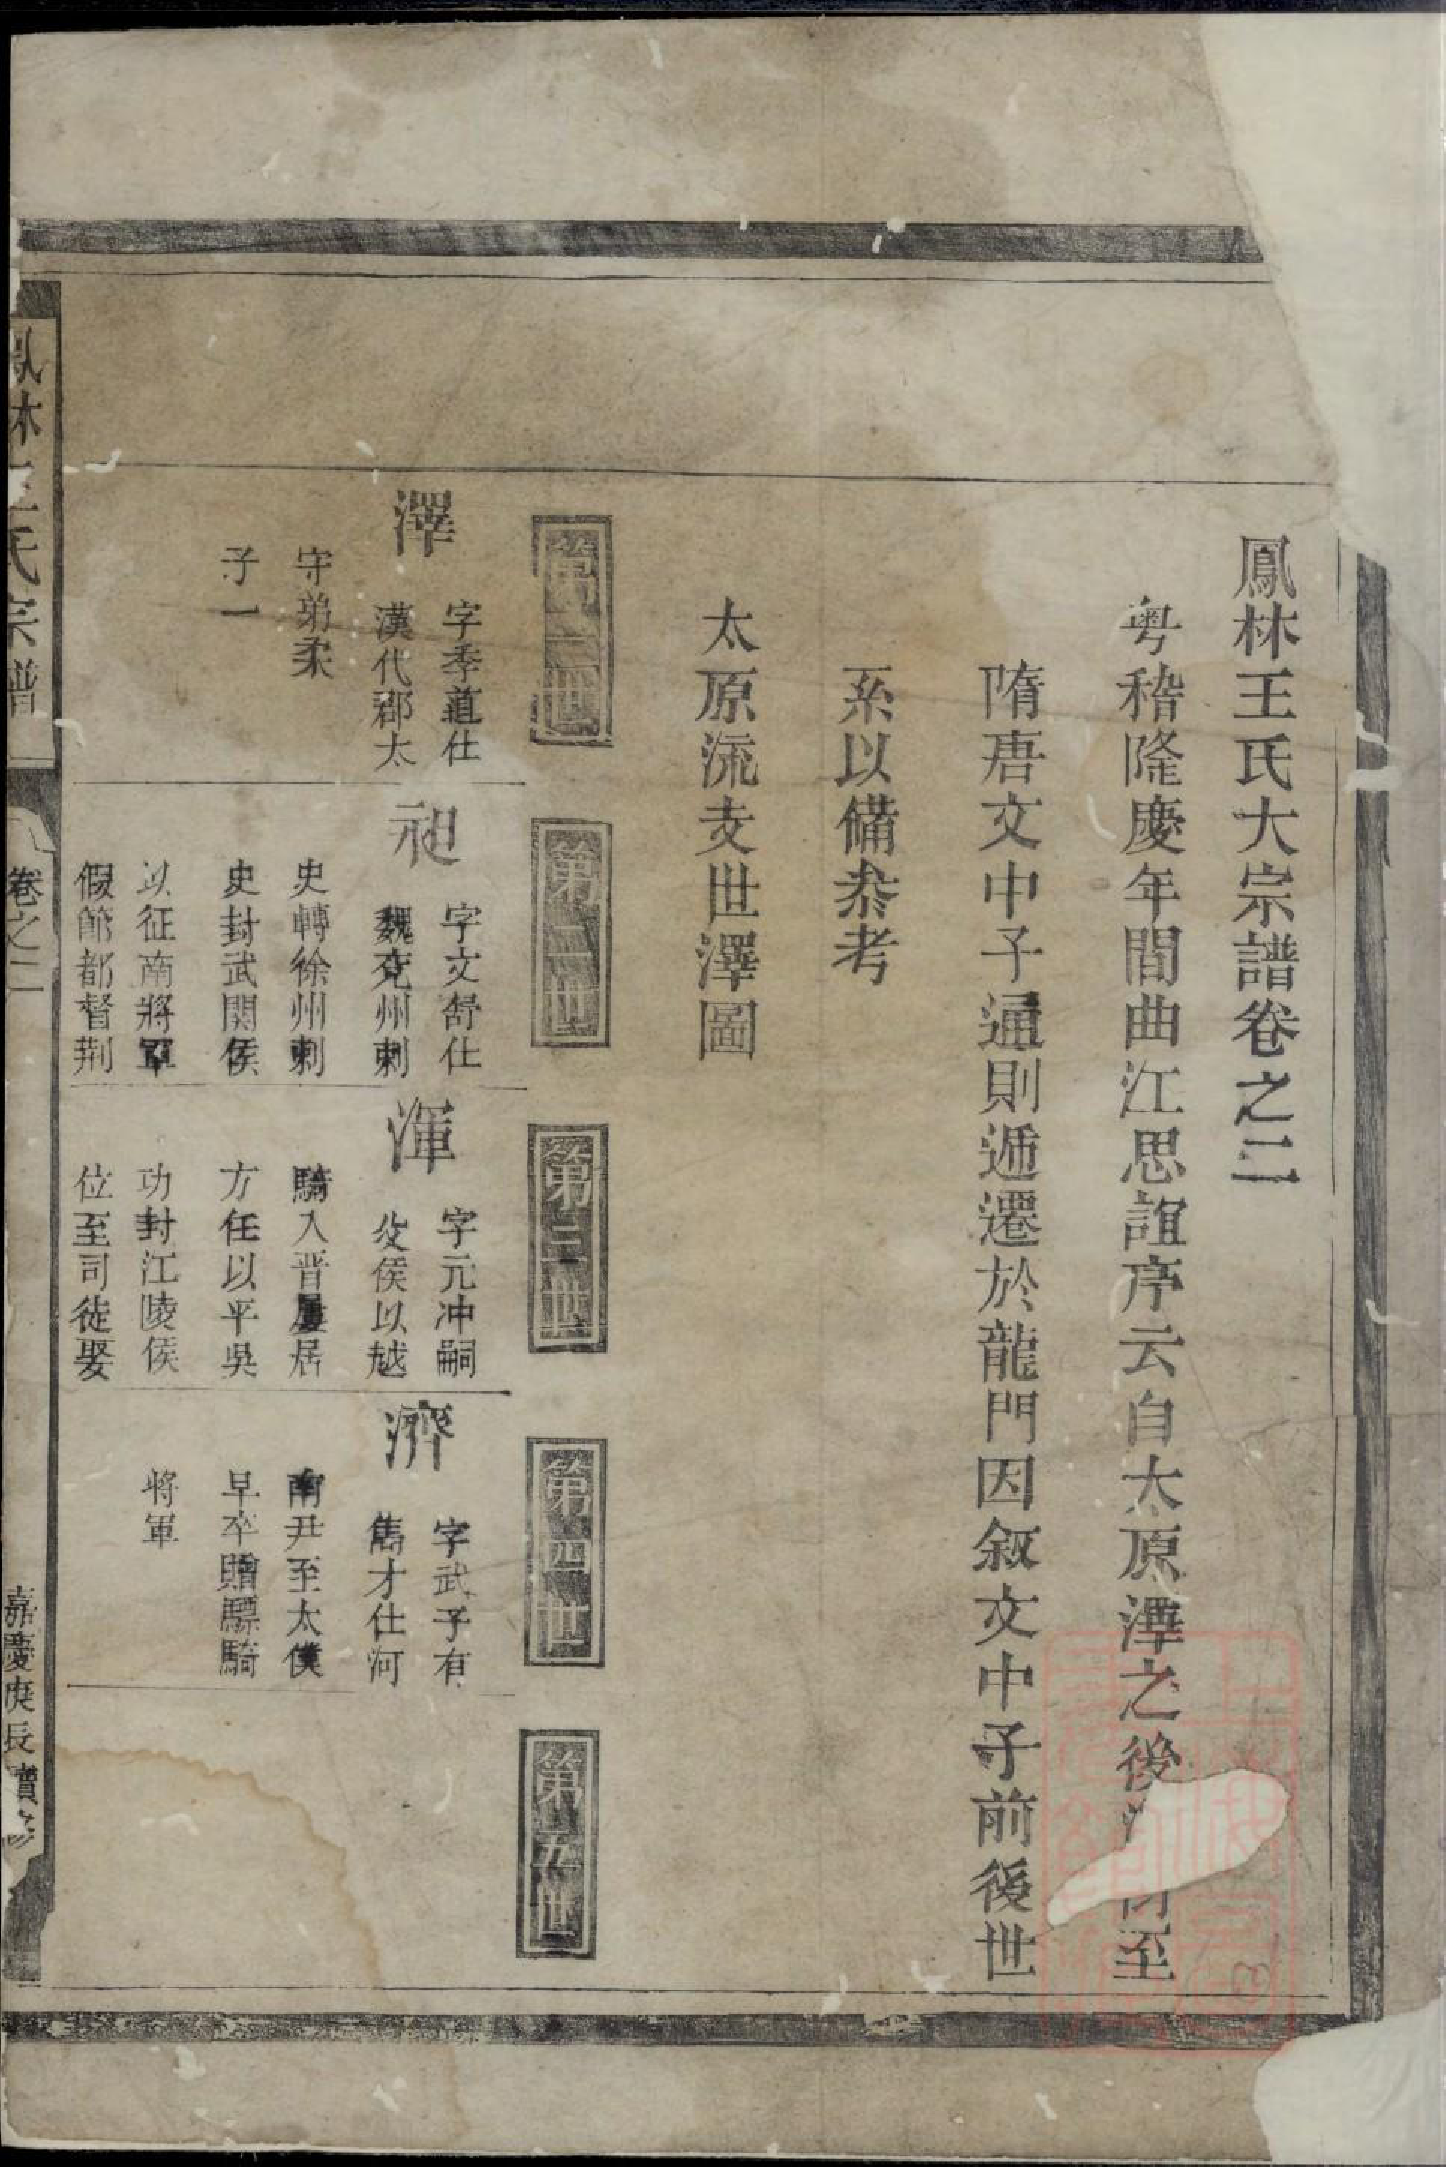 鳳林王氏大宗譜卷之二
粤稽隆慶年間曲江思誼序云自太原澤之後
至
隋唐文中子通則遁遷於龍門因叙文中子前後世
系以備叅考
太原流支世澤圖
第一世
第二世
第三世
第四世
第五世
澤
字季道仕
漢代郡太
守弟柔
子一
昶
字文舒仕
魏兖州刺
史轉徐州刺
史封武関侯
以征南將軍
假節都督荆
渾
字元冲嗣
父侯以越
騎入晋屢居
方任以平吳
功封江陵侯
位至司徒娶
濟
字武子有
雋才仕河
南尹至太僕
早卒贈驃騎
將軍
鳳林王氏宗譜
卷之二
嘉慶庚辰續修